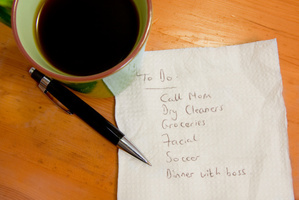 To Do
Call Mom
Dry Cleaners
Groceries
Facial
Soccer
Dinner with boss